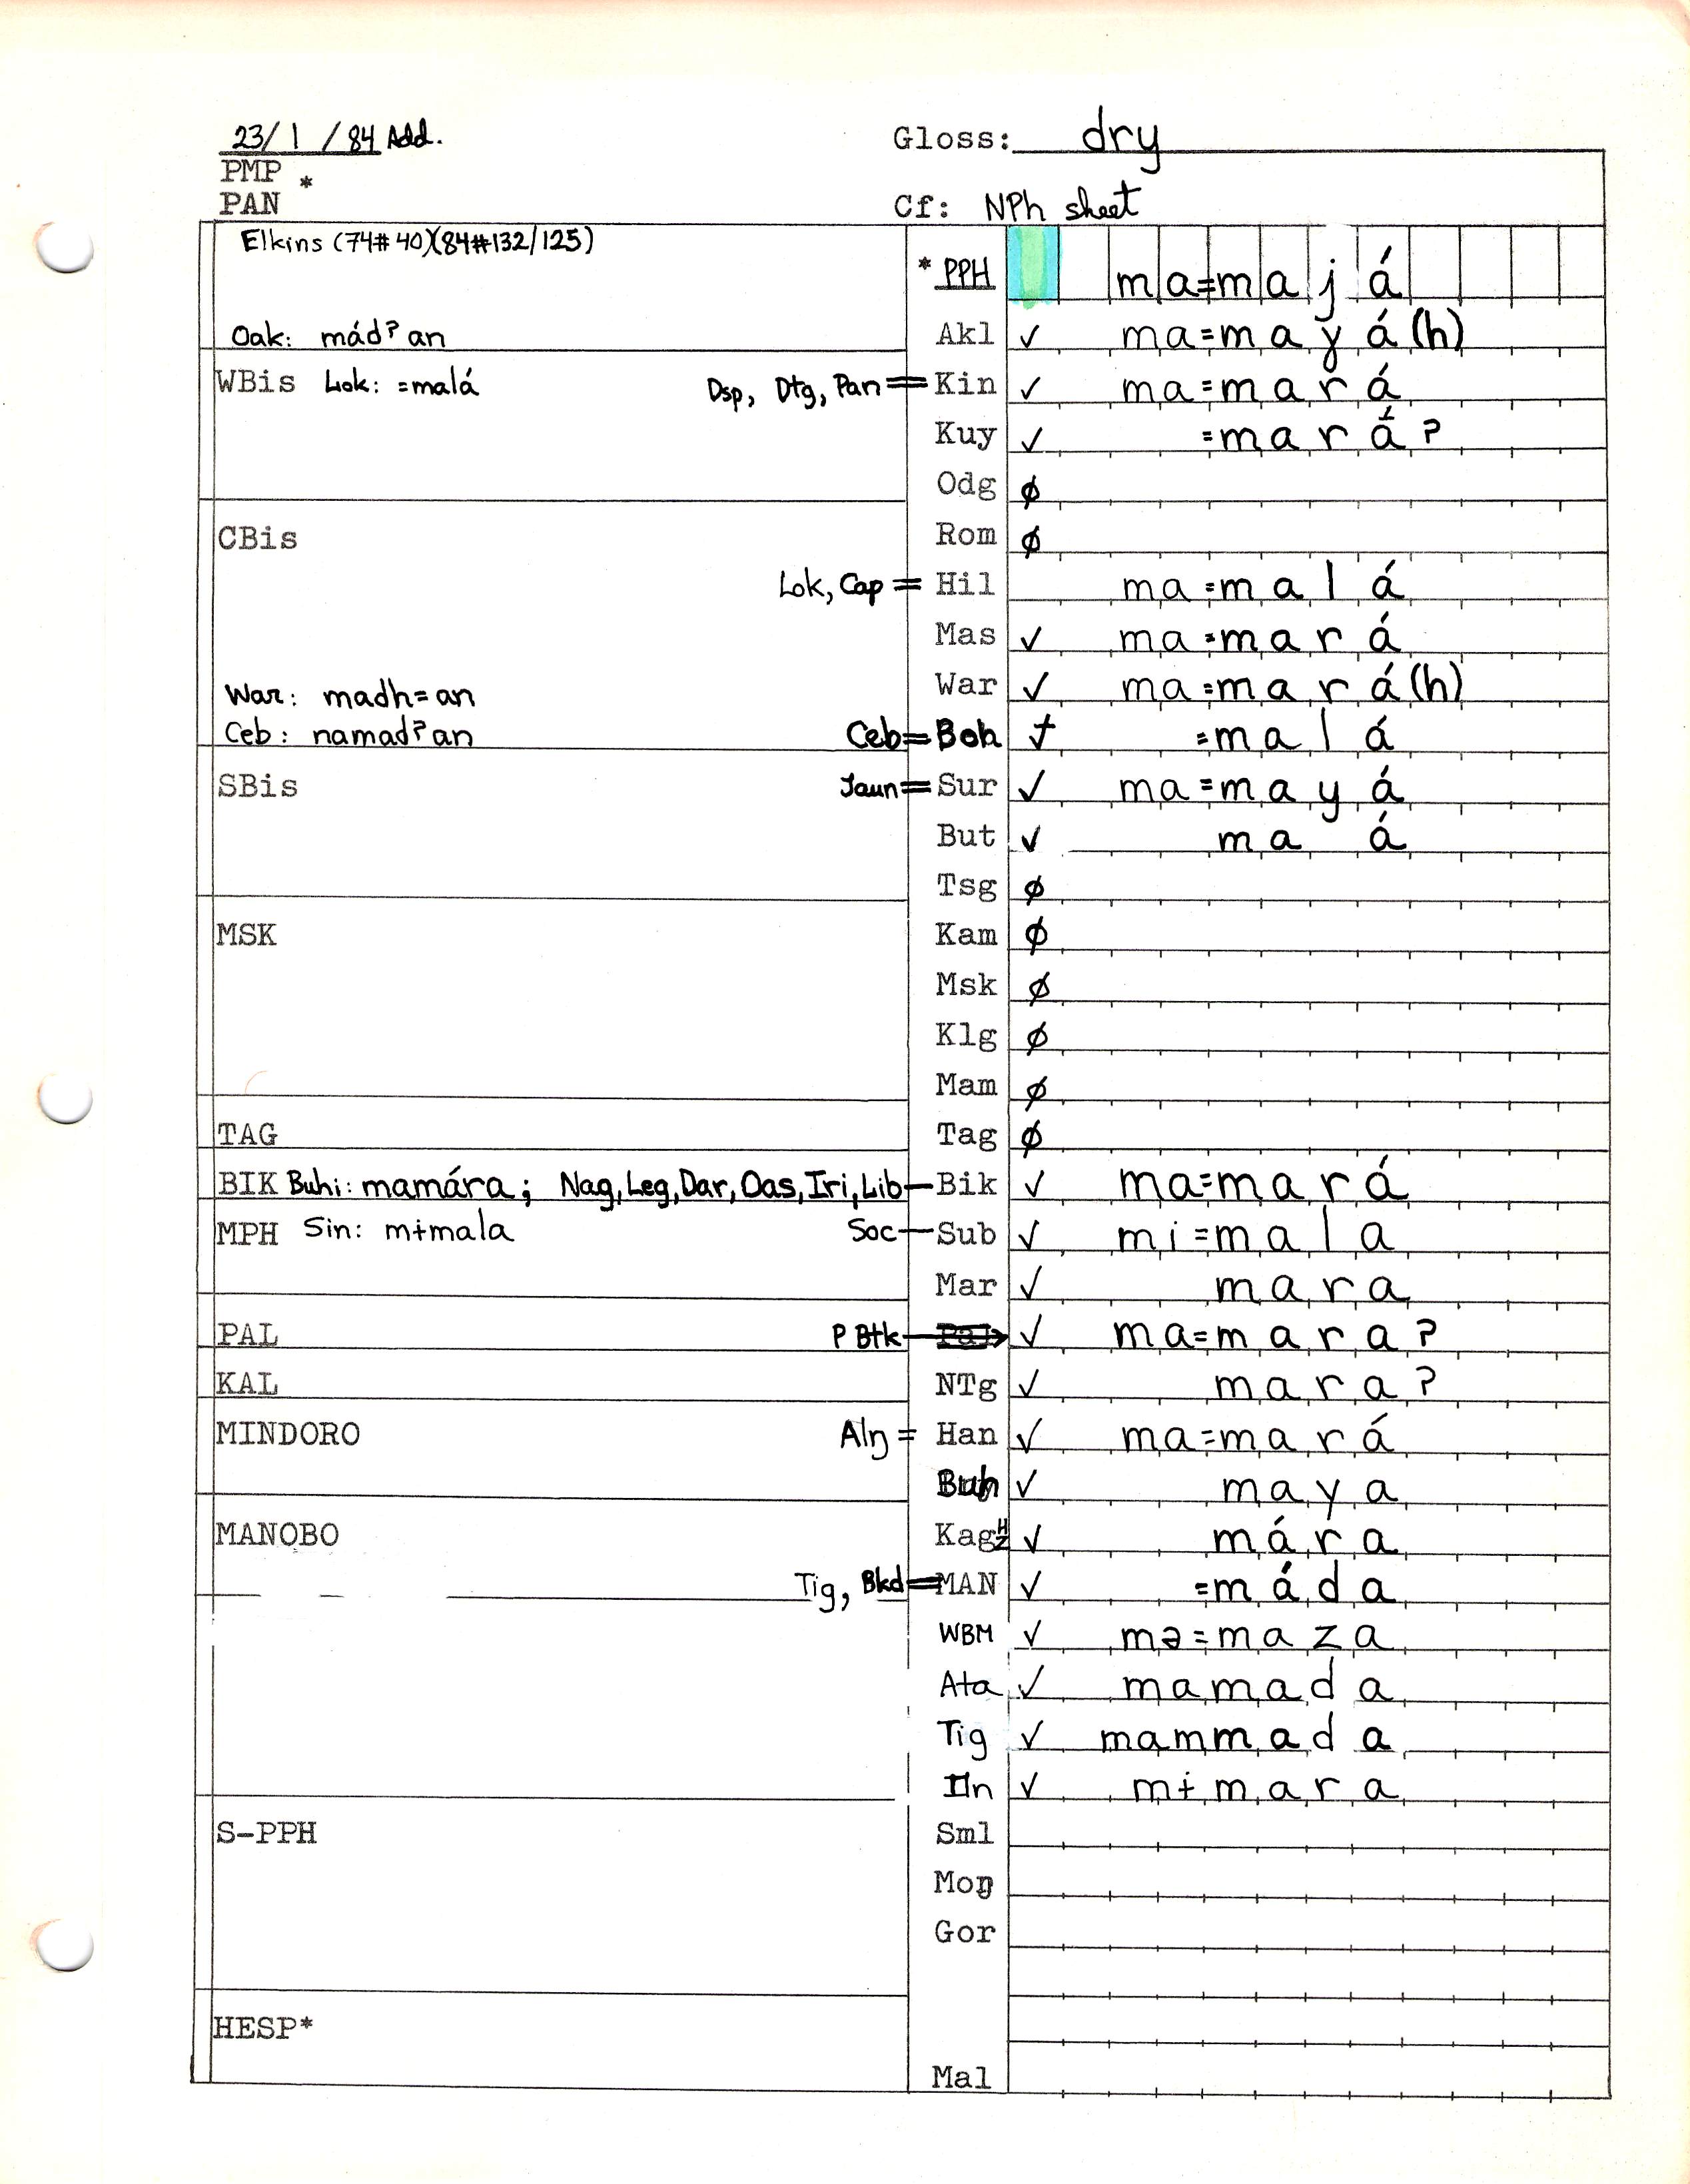 23/1/84 Add. Gloss: dry
PMP *
PAN Cf: NPh sheet
Elkins (74#40)(84#132/125)
*PPH ma=majá
Oak: mád?an Akl ✓ ma=mayá(h)
WBis Lok: =malá Dsp, Dtg, Pan = Kin ✓ ma=mará
Kuy ✓ =mará?
Odg ∅
CBis Rom ∅
Lok, Cap = Hil ma=malá
Mas ✓ ma=mará
War: madh=an War ✓ ma=mará(h)
Ceb: namad?an Ceb=Boh =malá
SBis Jaun=Sur ✓ ma=mayá
But ✓ ma á
Tsg ∅
MSK Kam ∅
Msk ∅
Klg ∅
Mam ∅
TAG Tag ∅
BIK Buhi: mamára; Nag, Leg, Dar, Oas, Iri, Lib—Bik ✓ ma=mará
MPH Sin: mɨmala Soc—Sub ✓ mi=mala
Mar ✓ mara
PAL P Btk → ✓ ma=mara?
KAL NTg ✓ mara?
MINDORO Alŋ = Han ✓ ma=mará
Buh ✓ maya
MANOBO Kag ✓ mára
Tig, Bkd=MAN ✓ =máda
WBM ✓ mə=maza
Ata ✓ mamada
Tig ✓ mammada
In ✓ mɨmara
S-PPH Sml
Moŋ
Gor
HESP*
Mal